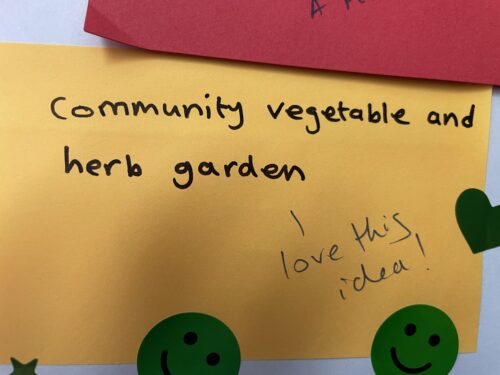 Community vegetable and
herb garden
I
love this
idea!